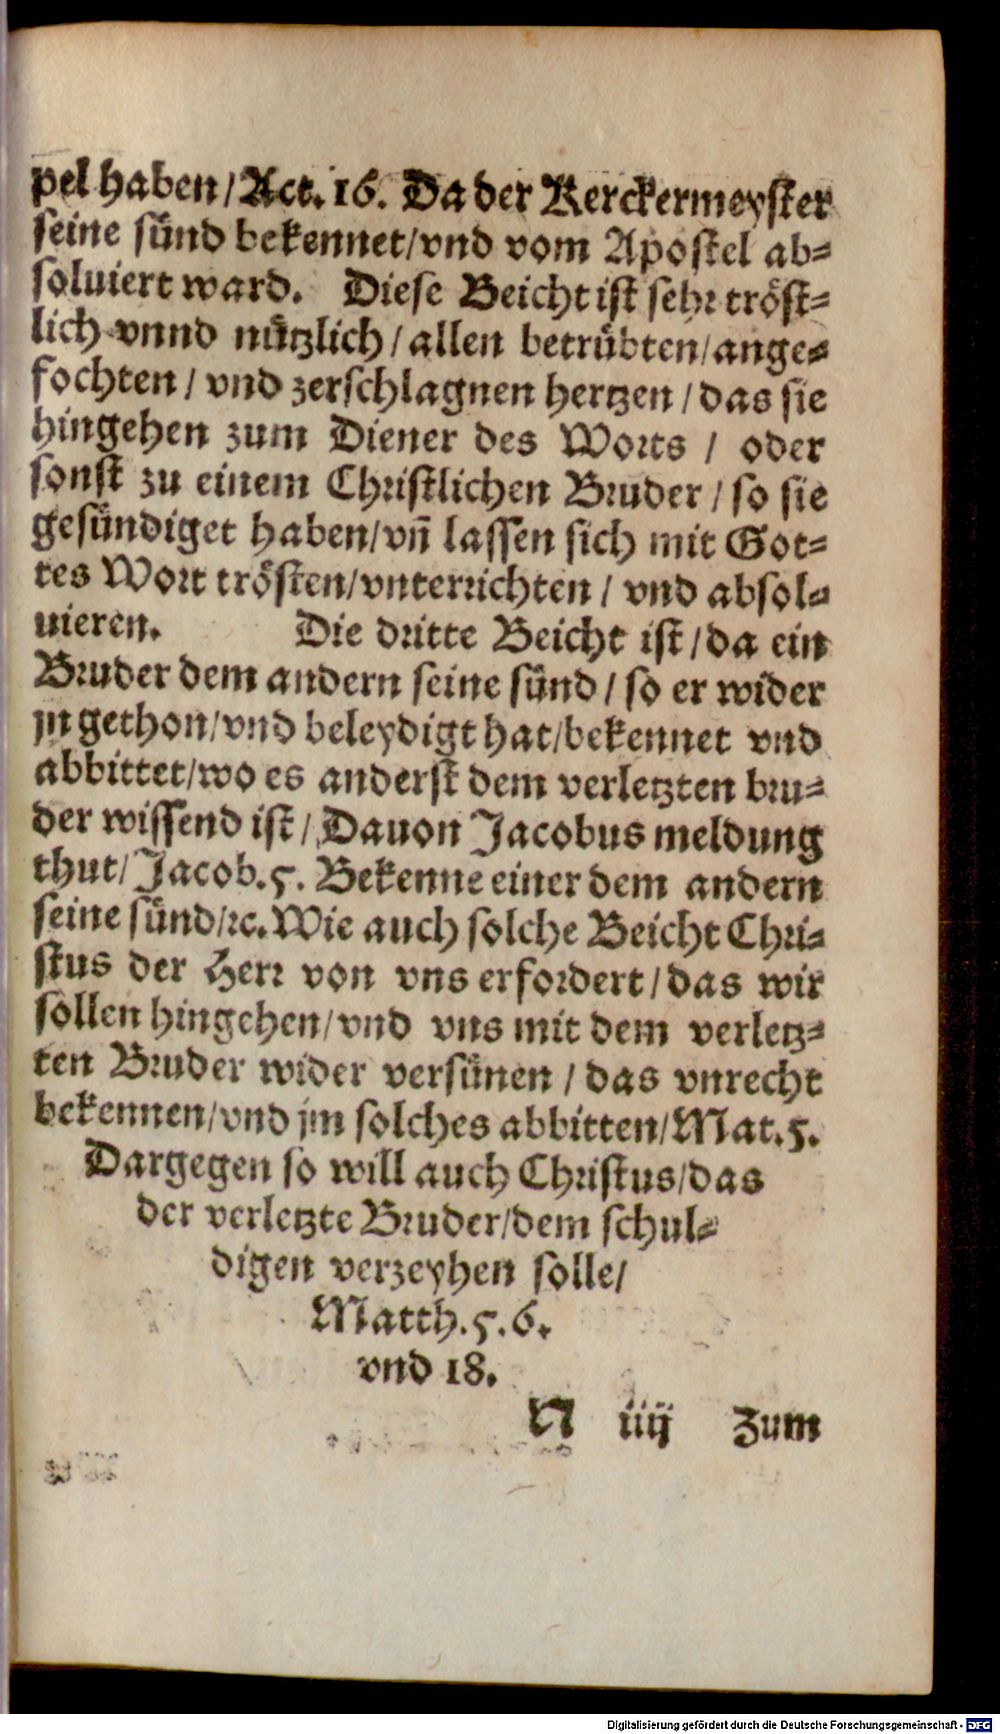 pel haben / Act. 16. Da der Kerckermeyster
seine sünd bekennet / vnd vom Apostel ab=
soluiert ward. Diese Beicht ist sehr tröst=
lich vnnd nützlich / allen betrübten / ange=
fochten / vnd zerschlagnen hertzen / das sie
hingehen zum Diener des Worts / oder
sonst zu einem Christlichen Bruder / so sie
gesündiget haben / vñ lassen sich mit Got=
tes Wort trösten / vnterrichten / vnd absol=
uieren. Die dritte Beicht ist / da ein
Bruder dem andern seine sünd / so er wider
jn gethon / vnd beleydigt hat / bekennet vnd
abbittet / wo es anderst dem verletzten bru=
der wissend ist / Dauon Jacobus meldung
thut / Jacob. 5. Bekenne einer dem andern
seine sünd / ꝛc. Wie auch solche Beicht Chri=
stus der Herr von vns erfordert / das wir
sollen hingehen / vnd vns mit dem verletz=
ten Bruder wider versünen / das vnrecht
bekennen / vnd jm solches abbitten / Mat. 5.
Dargegen so will auch Christus / das
der verletzte Bruder / dem schul=
digen verzeyhen solle /
Matth. 5. 6.
vnd 18.
N iiij Zum
Digitalisierung gefördert durch die Deutsche Forschungsgemeinschaft - DFG